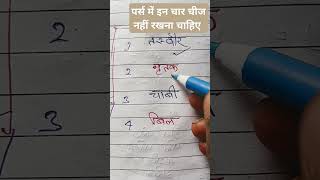 पर्स में इन चार चीज
नहीं रखना चाहिए
2.
1 तस्वीर
2 मृतक
3 चाबी
4 बिल